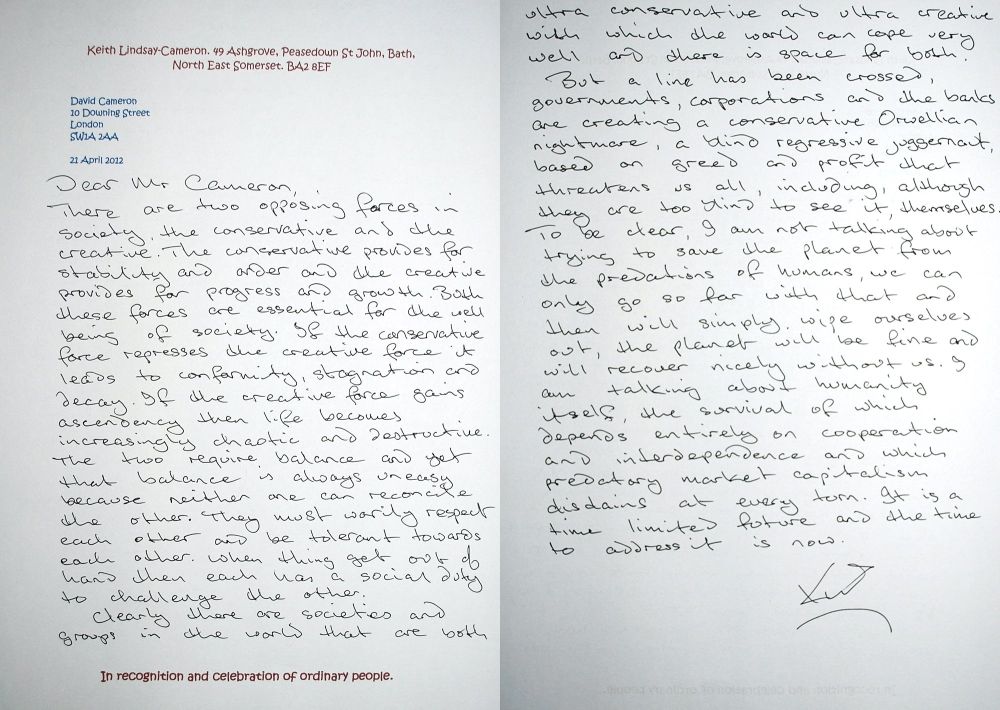 Keith Lindsay-Cameron. 49 Ashgrove, Peasedown St John, Bath,
North East Somerset. BA2 8EF
David Cameron
10 Downing Street
London
SW1A 2AA
21 April 2012
Dear Mr Cameron,
There are two opposing forces in
society, the conservative and the
creative. The conservative provides for
stability and order and the creative
provides for progress and growth. Both
these forces are essential for the well
being of society. If the conservative
force represses the creative force it
leads to conformity, stagnation and
decay. If the creative force gains
ascendency then life becomes
increasingly chaotic and destructive.
The two require balance and yet
that balance is always uneasy
because neither one can reconcile
the other. They must warily respect
each other and be tolerant towards
each other. When thing get out of
hand then each has a social duty
to challenge the other.
Clearly there are societies and
groups in the world that are both
In recognition and celebration of ordinary people.
ultra conservative and ultra creative
with which the world can cope very
well and there is space for both.
But a line has been crossed,
governments, corporations and the banks
are creating a conservative Orwellian
nightmare, a blind regressive juggernaut,
based on greed and profit that
threatens us all, including, although
they are too blind to see it, themselves.
To be clear, I am not talking about
trying to save the planet from
the predations of humans, we can
only go so far with that and
then will simply wipe ourselves
out, the planet will be fine and
will recover nicely without us. I
am talking about humanity
itself, the survival of which
depends entirely on cooperation
and interdependence and which
predatory market capitalism
disdains at every torn. It is a
time limited future and the time
to address it is now.